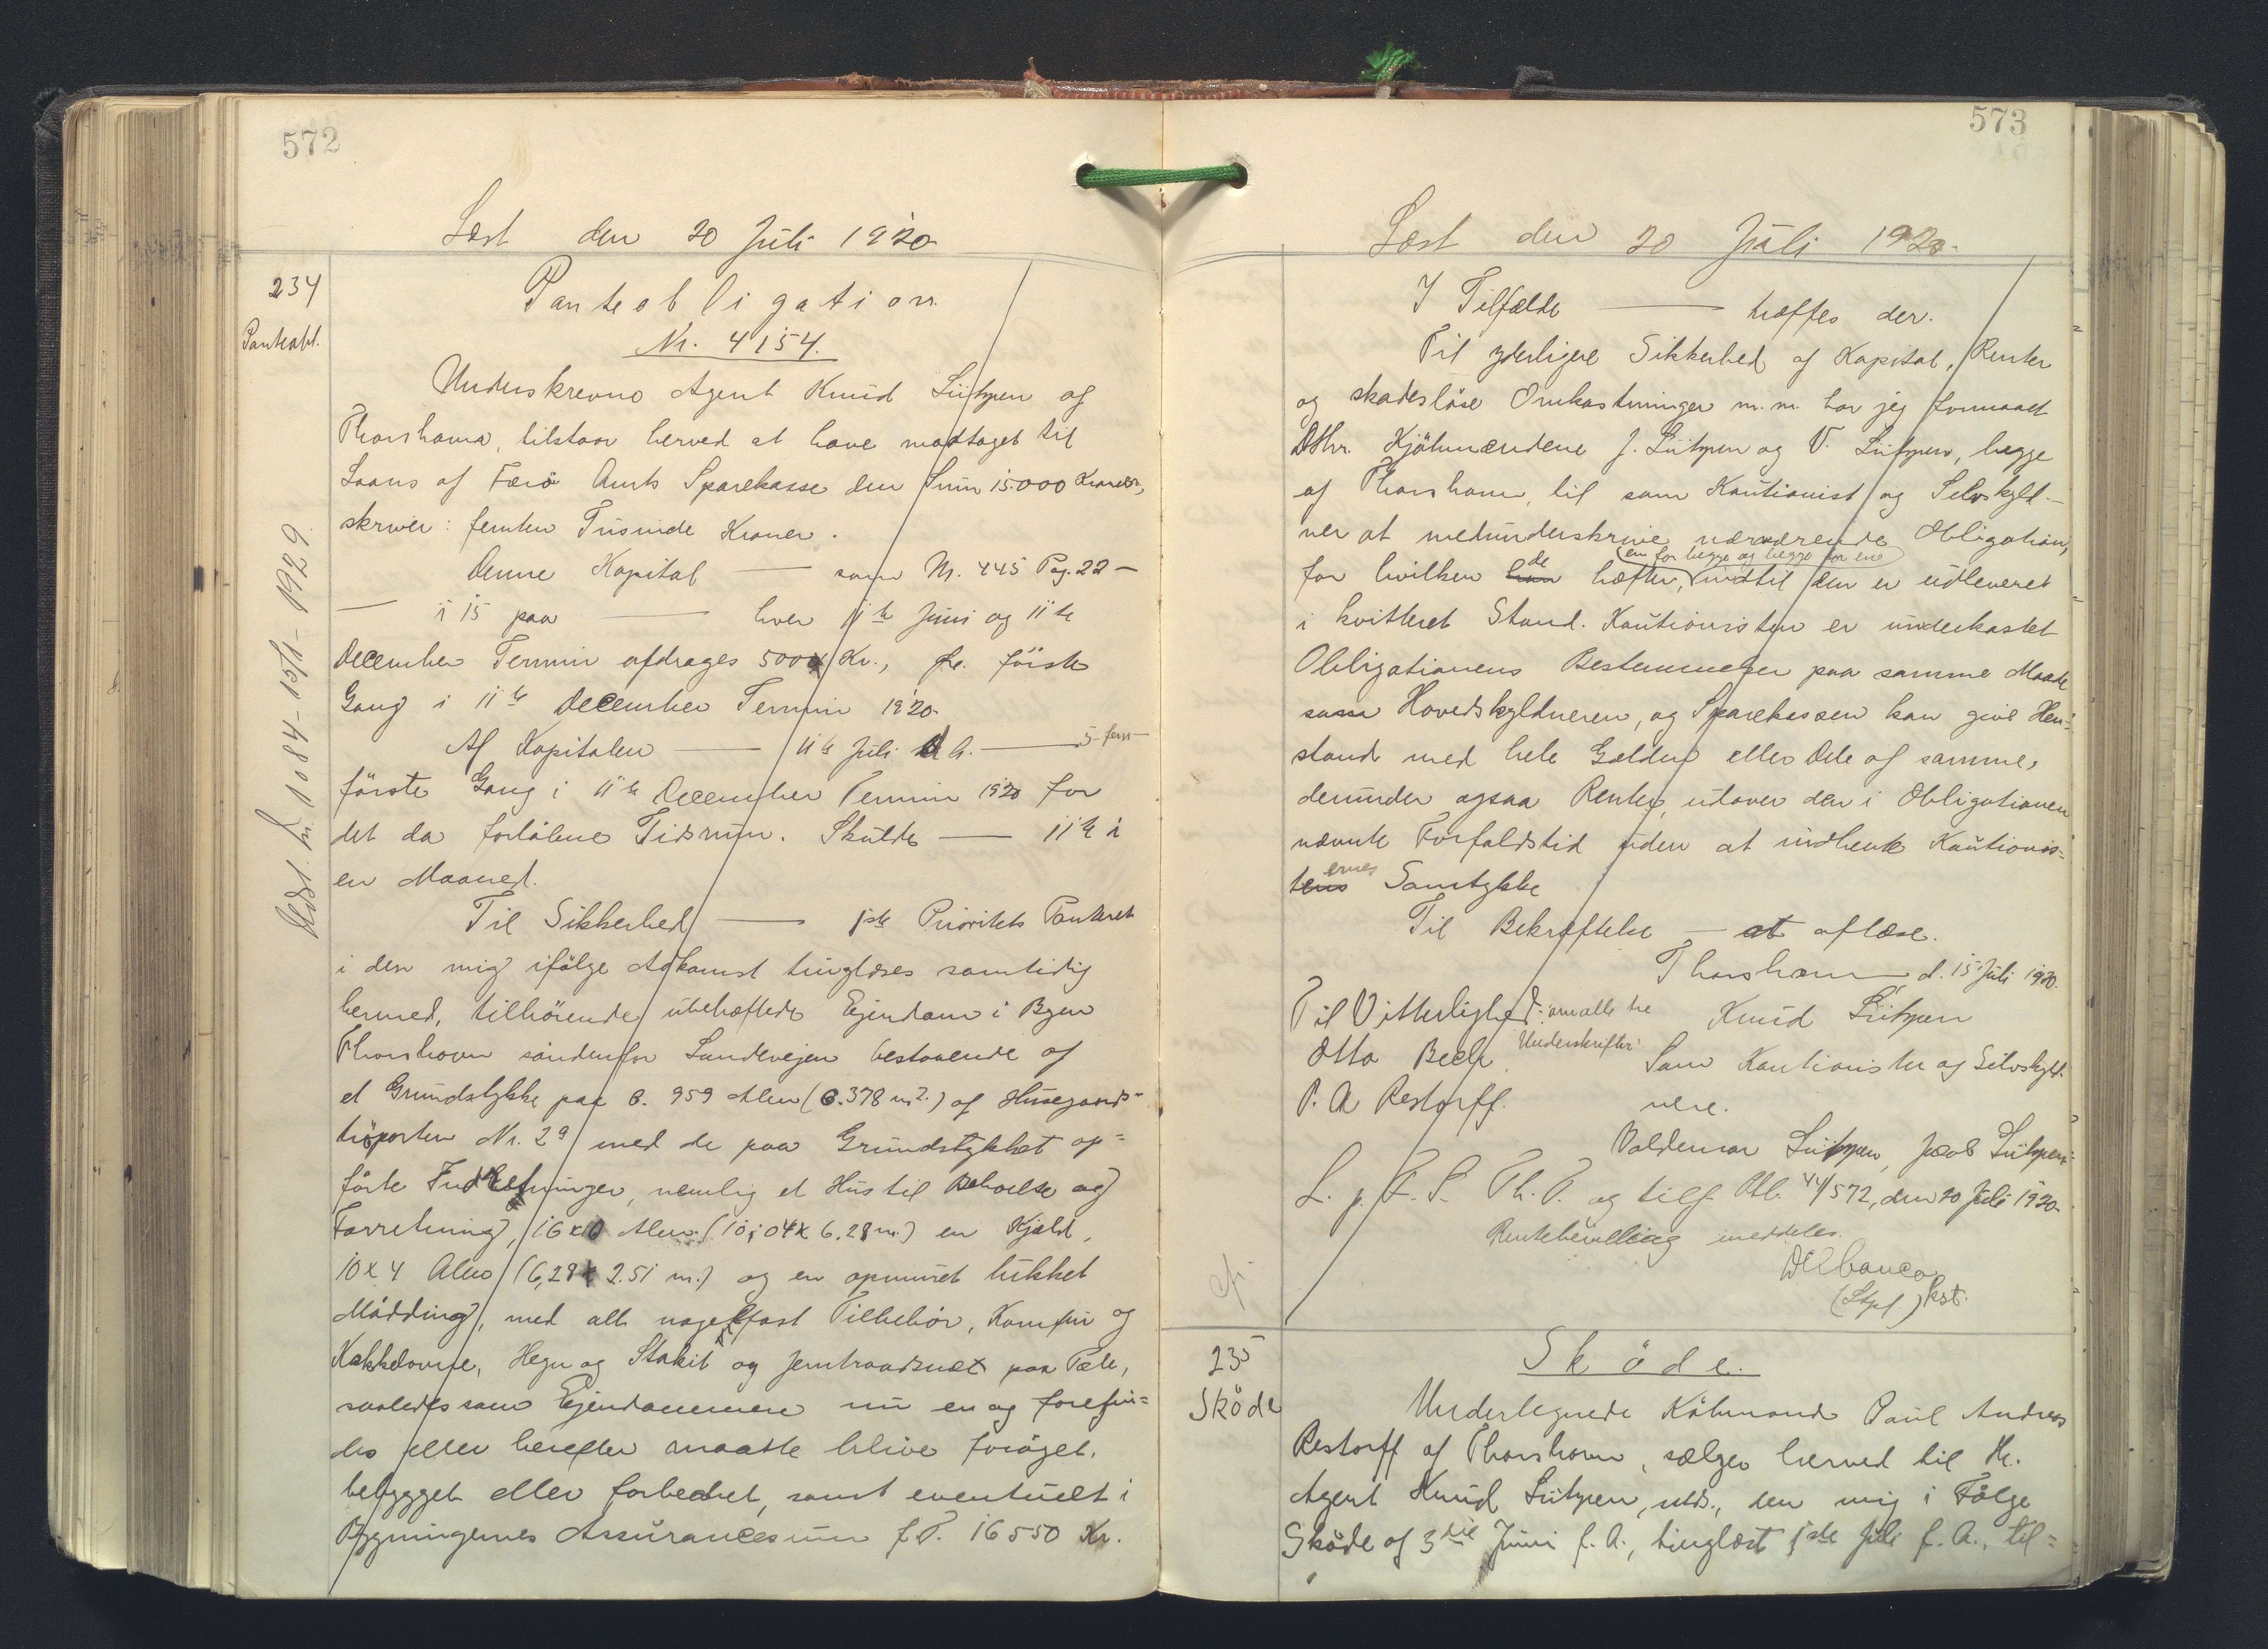 572
Læst den 20 Juli 1920
234
Panteobl.
Panteobligation.
Nr. 4154.
Underskrevne Agent Knud Lützen af
Thorshavn, tilstaar herved at have modtaget til
Laans af Færø Amts Sparekasse den Sum 15.000 Kroner,
skriver: femten Tusinde Kroner.
Denne Kapital — som Nr. 445 Pag. 22 —
— i 15 paa — hver 11te Juni og 11te
December Termin afdrages 500 Kr., første
Gang i 11te December Termin 1920.
Af Kapitalen — 11te Juli d. A. — 5 - fem —
første Gang i 11te December Termin 1920 for
det da forløbne Tidsrum. Skulde — 11te i
en Maaned.
Til Sikkerhed — 1ste Prioritets Panteret
i den mig ifølge Adkomst tinglæses samtidig
hermed, tilhørende ubehæftede Ejendom i Byen
Thorshavn søndenfor Landevejen bestaaende af
et Grundstykke paa 959 Alen (378 m2.) af Husegaards-
trøporten Nr. 2a med de paa Grundstykket op=
førte Indretninger, nemlig et Hus til Beboelse og
Forretning, 16 x 10 Alen (10,04 x 6.28 m.) en Kjæld,
10 x 4 Alen (6,28 x 2.51 m.) og en opmuret lukket
Mødding, med alt nagelfast Tilbehør, Komfur og
Kakkelovne, Hegn og Stakit og Jerntraadsnæt paa Pæle,
saaledes som Ejendommene nu er og forefin=
des eller herefter maatte blive forøget,
bebygget eller forbedret, samt eventuelt i
Bygningernes Assurancesum f. T. 16550 Kr.
Udsl. 1084 - 15/1 - 1929.
573
Læst den 20 Juli 1920.
I Tilfælde — træffes der.
Til yderligere Sikkerhed af Kapital, Renter
og skadesløse Omkostninger m.m. har jeg formaaet
DHrr. Kjøbmændene J. Lützen og V. Lützen, begge
af Thorshavn, til som Kautionist og Selvskyld-
ner at medunderskrive nærværende Obligation,
en for begge og begge for en
for hvilken han de hæfter, indtil den er udleveret
i kvitteret Stand. Kautionisten er underkastet
Obligationens Bestemmelser paa samme Maade
som Hovedskyldneren, og Sparekassen kan give Hen=
stand med hele Gælden eller Dele af samme,
derunder ogsaa Renter, udover den i Obligationen
nævnte Forfaldstid uden at indhente Kautionis=
tens ernes Samtykke
Til Bekræftelse — at aflæse.
Thorshavn, d. 15 Juli 1920.
Til Vitterlighed: om alle tre Underskrifter: Knud Lützen
Otto Bech. Som Kautionister og Selvskyld-
P. A Restorff. nere.
Valdemar Lützen, Jacob Lützen
L. p. F. S. Th. P. og tilf. Ptb. 44/572, den 20 Juli 1920.
Rentebevilling meddeles.
(Stpl.) kst.
cfr.
235
Skøde
Skøde.
Undertegnede Købmand Paul Andreas
Restorff af Thorshavn, sælger herved til Hr.
Agent Knud Lützen, stds., den mig i Følge
Skøde af 3die Juni f. A., tinglæst 1ste Juli f. A., til=